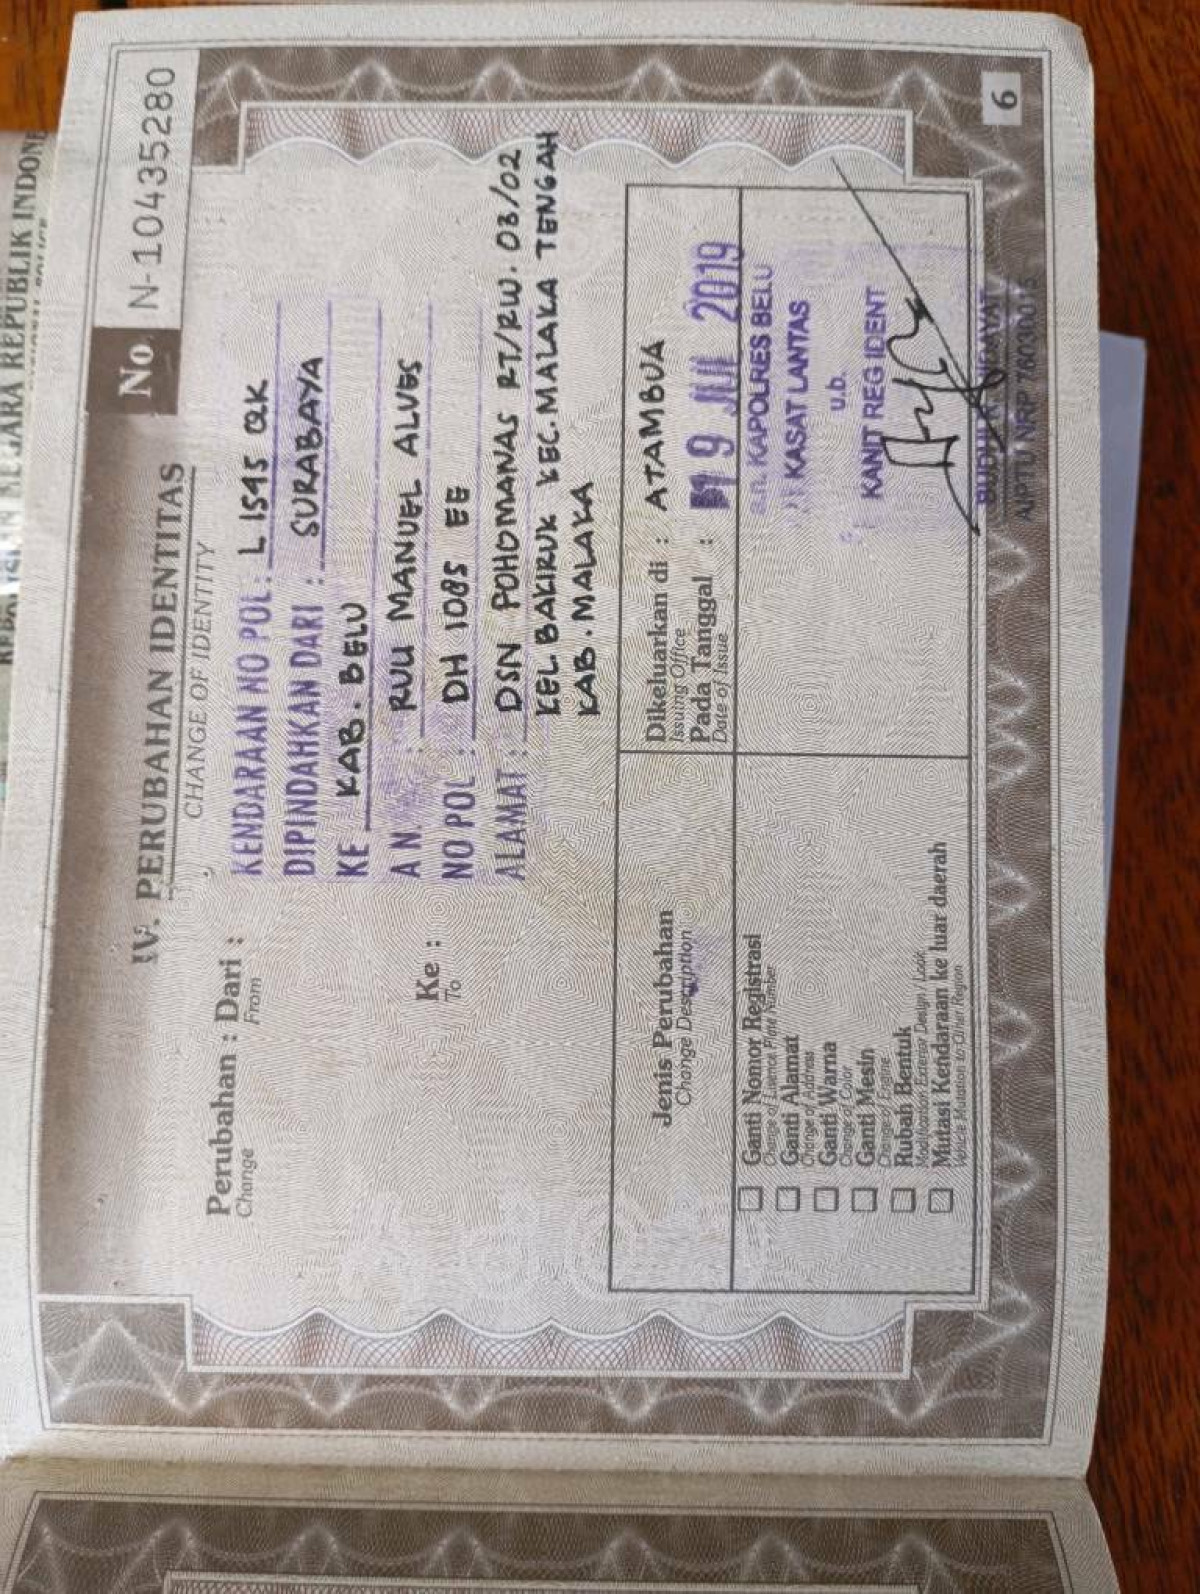 No N-10435280
IV. PERUBAHAN IDENTITAS
CHANGE OF IDENTITY
Perubahan : Dari :
Change From
KENDARAAN NO POL : L 1545 QK
DIPINDAHKAN DARI : SURABAYA
KE KAB. BELU
A N. : RUU MANUEL ALVES
Ke :
To
NO POL : DH 1085 EE
ALAMAT : DSN POHOMANAS RT/RW. 03/02
KEL. BAKIRUK KEC. MALAKA TENGAH
KAB. MALAKA
Jenis Perubahan
Change Description
Dikeluarkan di : ATAMBUA
Issuing Office
Pada Tanggal : 19 JUL 2019
Date of Issue
Ganti Nomor Registrasi
Change of Licence Plate Number
Ganti Alamat
Change of Address
Ganti Warna
Change of Color
Ganti Mesin
Change of Engine
Rubah Bentuk
Modification Exterior Design / Look
Mutasi Kendaraan ke luar daerah
Vehicle Mutation to Other Region
a.n. KAPOLRES BELU
KASAT LANTAS
u.b.
KANIT REG IDENT
6
REPUBLIK INDONE